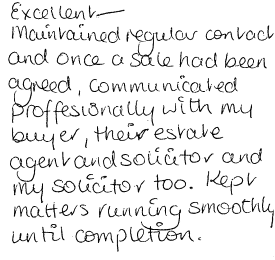 Excellent—
Maintained regular contact
and once a sale had been
agreed, communicated
proffesionally with my
buyer, their estate
agent and solicitor and
my solicitor too. Kept
matters running smoothly
until completion.